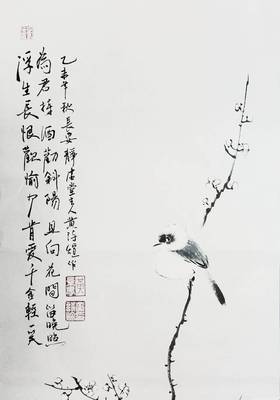 浮生長恨歡愉少肯愛千金輕一笑
為君持酒勸斜陽且向花間留晚照
乙未年秋長安靜居堂主人黃作